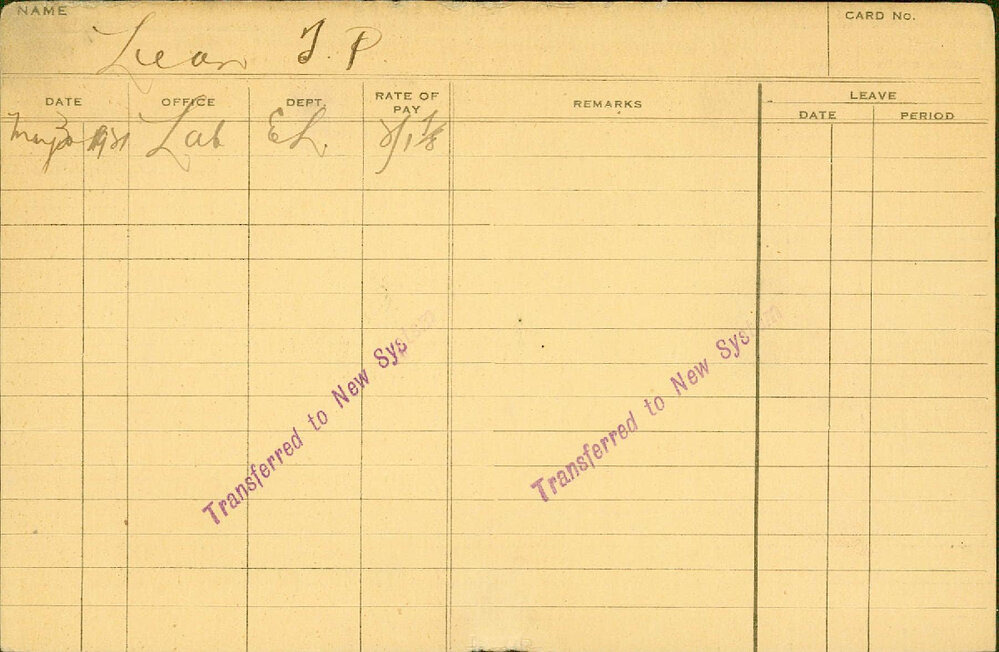 NAME
T. P.
CARD NO.
DATE OFFICE DEPT. RATE OF PAY REMARKS LEAVE
DATE PERIOD
Lab EL.
Transferred to New System
Transferred to New System